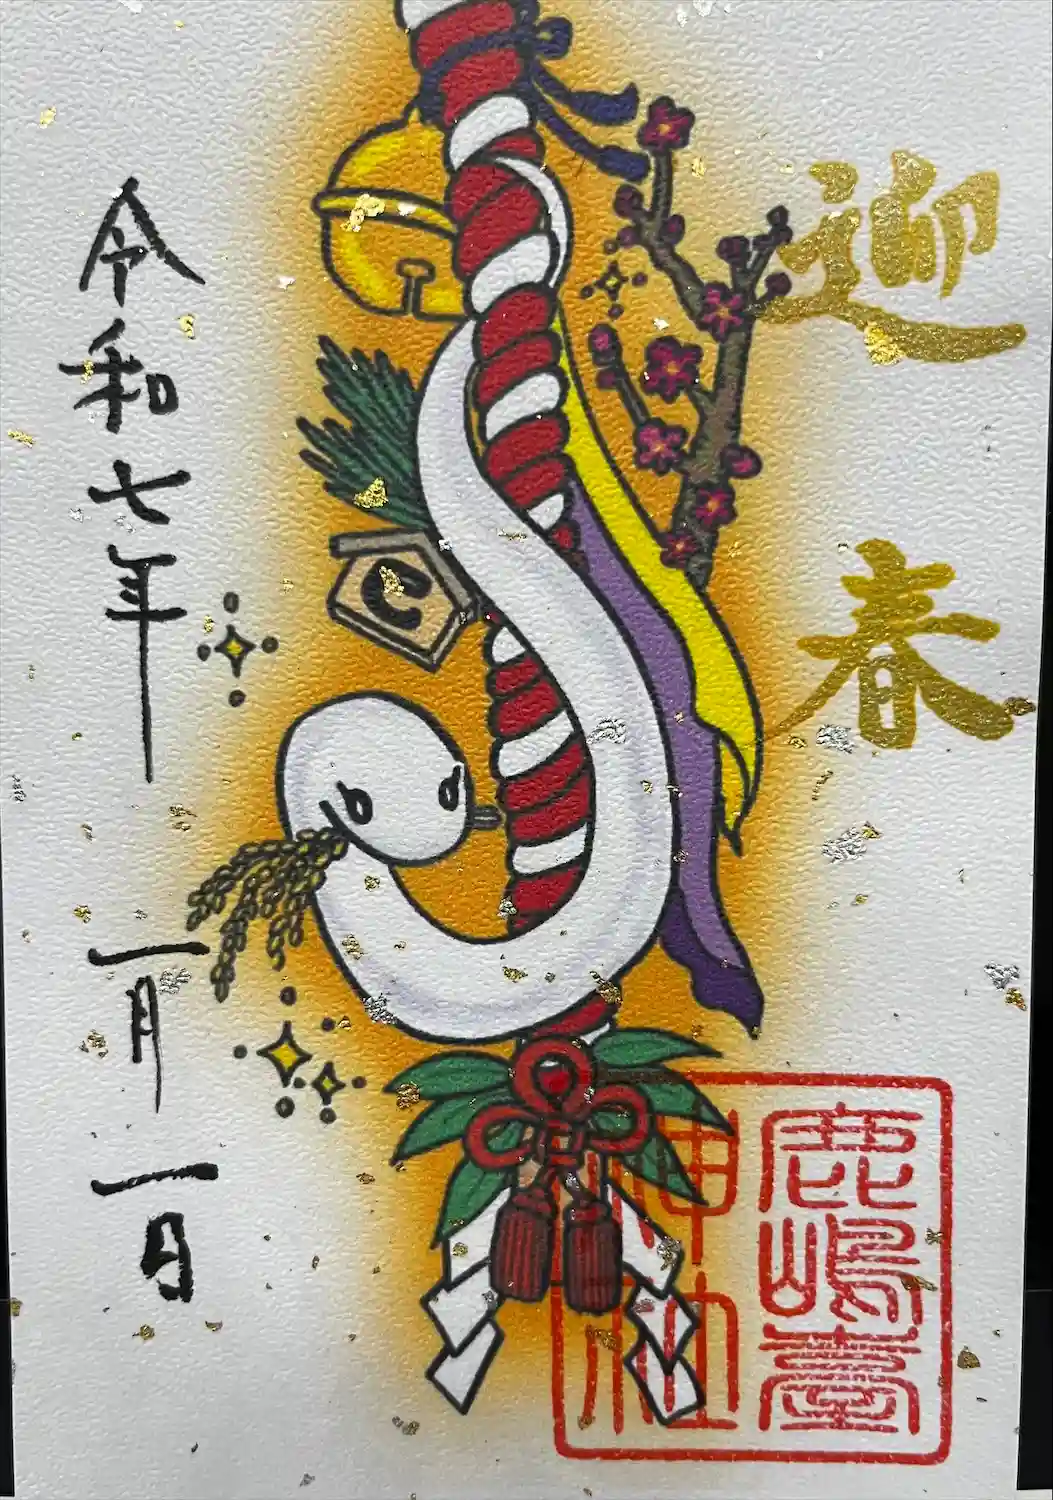 迎春
鹿嶋臺
神社
令和七年一月一日